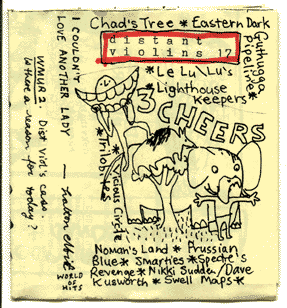 Chad's Tree * Eastern Dark
Guthugga
Pipeline *
distant
violins 17
* Le Lu \ Lu's
* Lighthouse
Keepers *
3 CHEERS
* Trilobites
* Vicious Circle
Noman's Land * Prussian
Blue * Smarties * Spectre's
Revenge * Nikki Sudden / Dave
Kusworth * Swell Maps *
I COULDN'T
LOVE ANOTHER LADY
WORLD
OF
HITS
WMUR 2. Dist Viol's cass.
is there a reason for today?